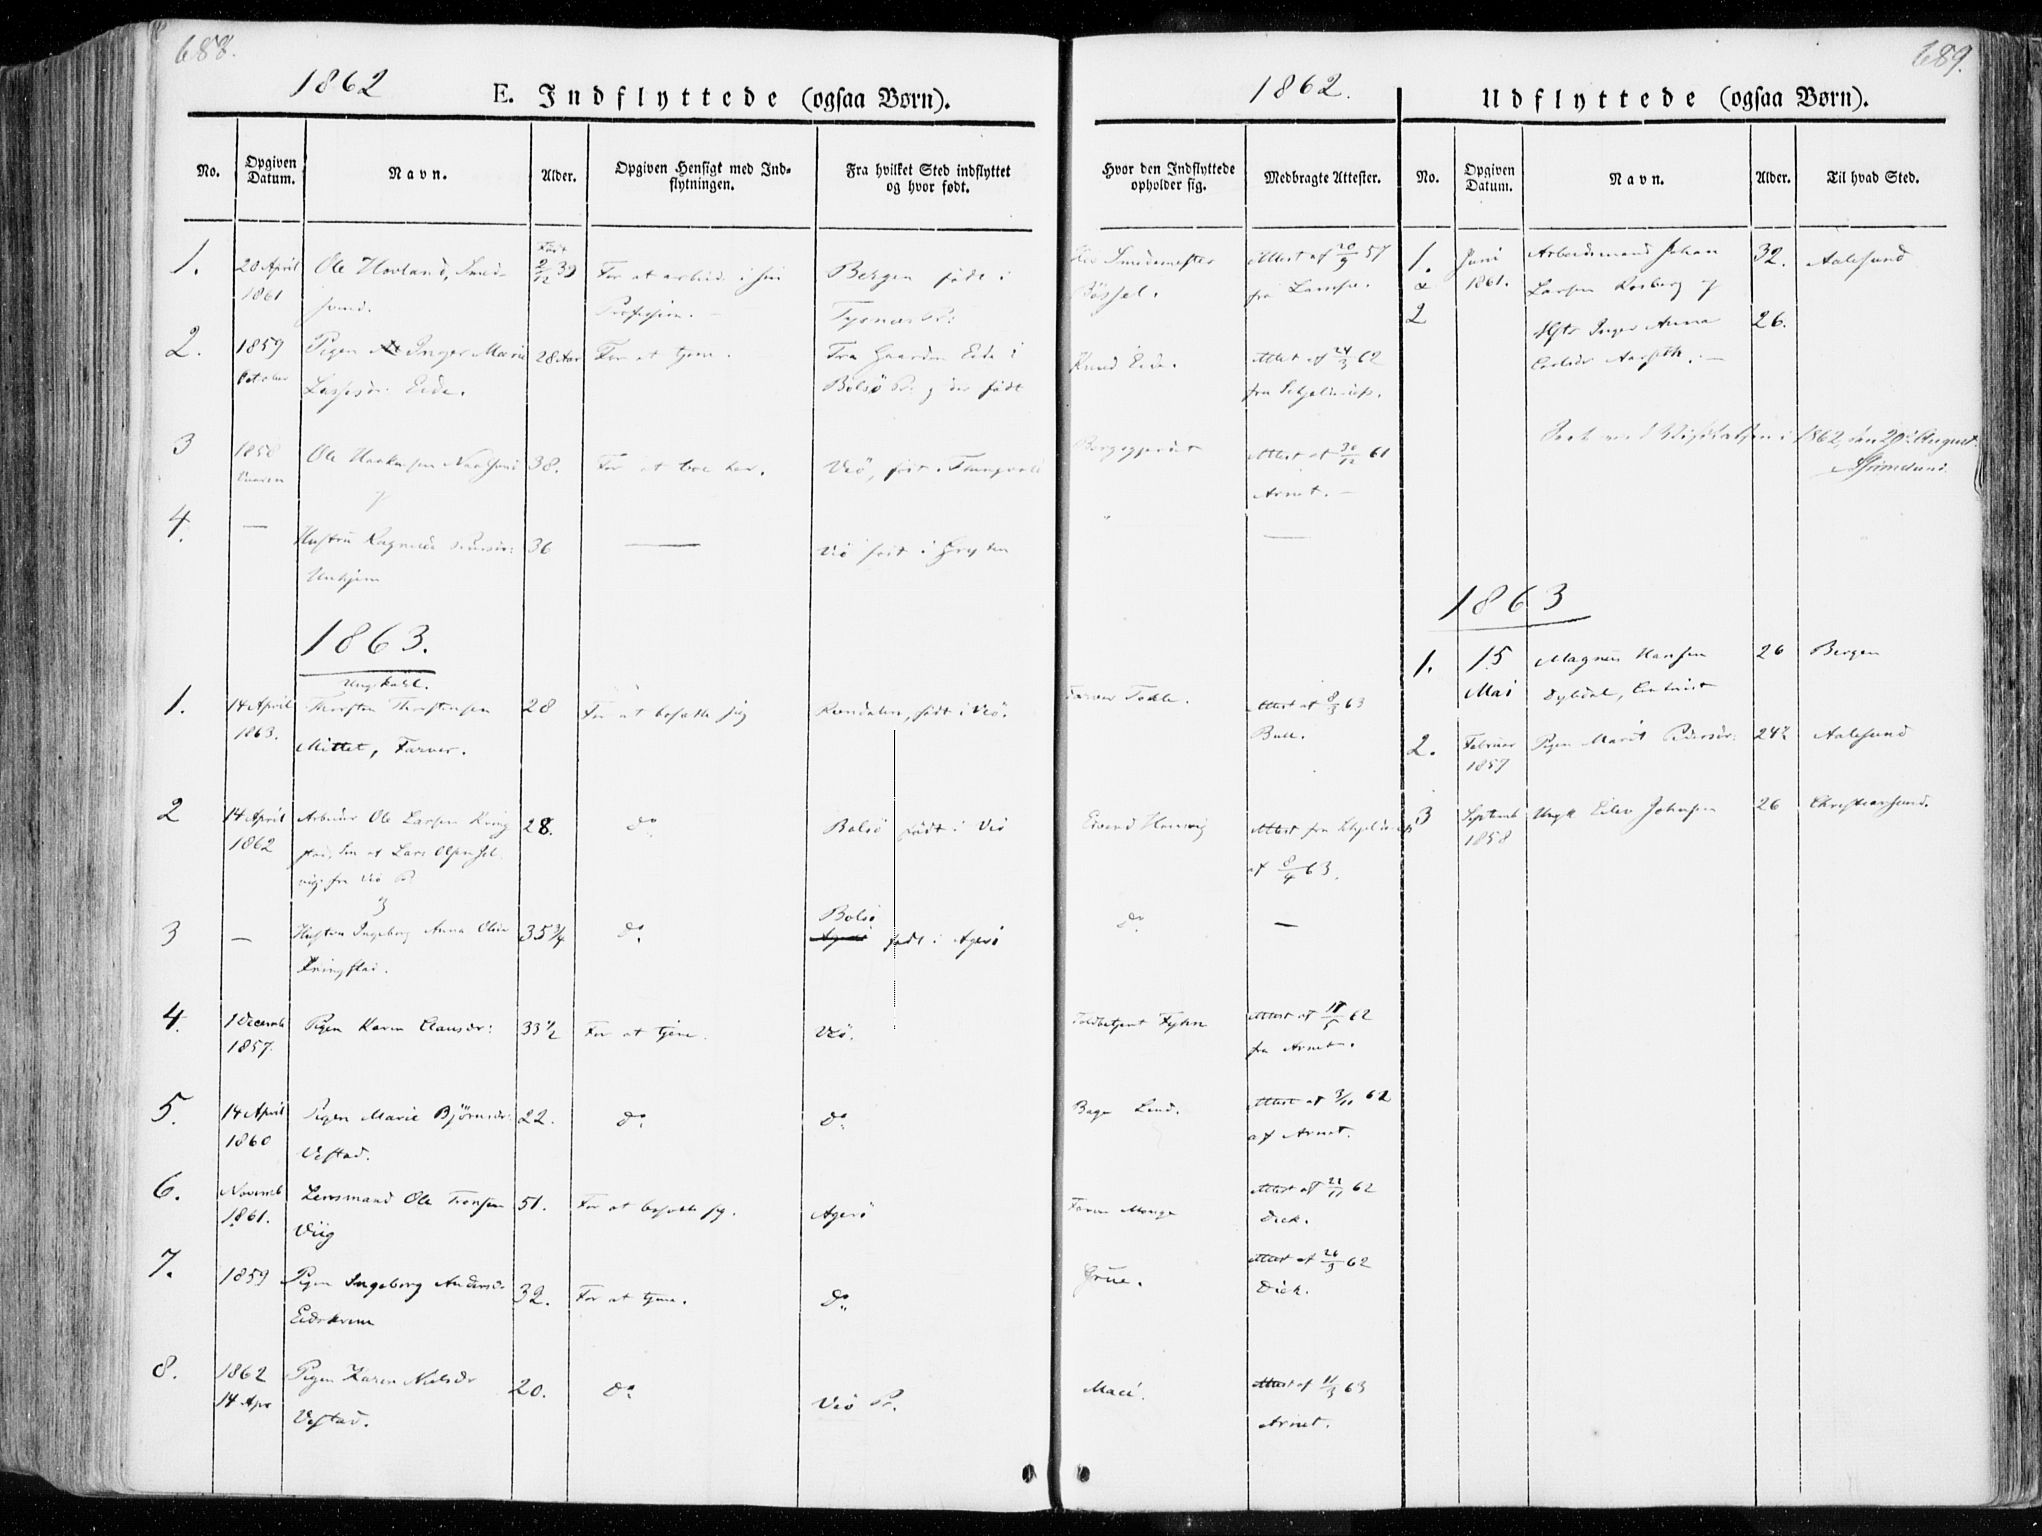 688.
1862
E. Indflyttede (ogsaa Børn).
No.
Opgiven Datum.
Navn.
Alder.
Opgiven Hensigt med Ind-
flytningen.
Fra hvilket Sted indflyttet
og hvor født.
1.
20 April
1861
Ole Hovland, Smed-
svend.
Født
2/12 39
For at arbeide i sin
Profession.
Bergen født i
2.
1859
October
Pigen Inger Marie
Eide.
28 Aar
For at tjene.
Fra Gaarden Eide i
Bolsø P. og der født
3
1858
Ole
38.
For at boe her.
Veø, født i
4.
—
Hustru
36
—
Veø født i Gryten
1863.
1.
14 April
1863.
Ungkarl.
Thorsten Thorstensen
Mittet, Farver.
28
For at bosætte sig
Romdalen, født i Veø.
2
14 April
1862
Arbeider Ole Larsen Kring
stad, Søn af Lars Olsen Sol
vig fra Veø P.
28.
do
Bolsø født i Veø
3
—
og
Hustru Ingeborg Anna
Kringstad.
35 3/4
do
Bolsø
født i Agerø
4.
1 Decemb
1857.
Pigen Karen Clausdr:
33 1/2
For at tjene.
Veø.
5.
14 April
1860
Pigen Marie Bjørnsdr:
Vestad.
22.
do
do
6.
Novemb
1861.
Lensmand Ole Tronsen
Viig
51.
For at bosætte sig.
Agerø
7.
1859
Pigen Ingeborg Andersdr
32.
For at tjene.
do
8.
1862
14 Apr
Pigen Karen Nielsdr
Vestad.
20.
do
Veø P.
689.
1862.
Udflyttede (ogsaa Børn).
Hvor den Indflyttede
opholder sig.
Medbragte Attester.
No.
Opgiven
Datum.
Navn.
Alder.
Til hvad Sted.
Smedemester
Attest af 20/9 57
fra
Knud Eide.
Attest af 24/3 62
fra Schjelderup.
Attest af 30/12 61
Arnet.
—
Farver Tokle.
Attest af 8/3 63
Bull.
Eivend
Attest fra Schjelderup
af 8/4 63.
do
—
Toldbetjent Fyhn
Attest af 18/5 62
fra Arnet.
Bager Lund.
Attest af 3/11 62
af Arnet.
Farver Monge
Attest af 22/11 62
Dick.
Grüe.
Attest af 26/3 62
Dick.
Macé.
Attest af 11/3 63
Arnet.
1.
&
2
Juni
1861.
Arbeidsmand Johan
Larsen Rosberg og
Hustr Inger Anna
32.
26.
Aalesund
1862, den 20de August.
1863
1.
15
Mai
Magnus Hansen
26
Bergen
2.
Februar
1859
Pigen Marit Pedersdr:
24 1/2
Aalesund
3
Septemb
1858
Ungk Eilev Johnsen
26
Christiansund.